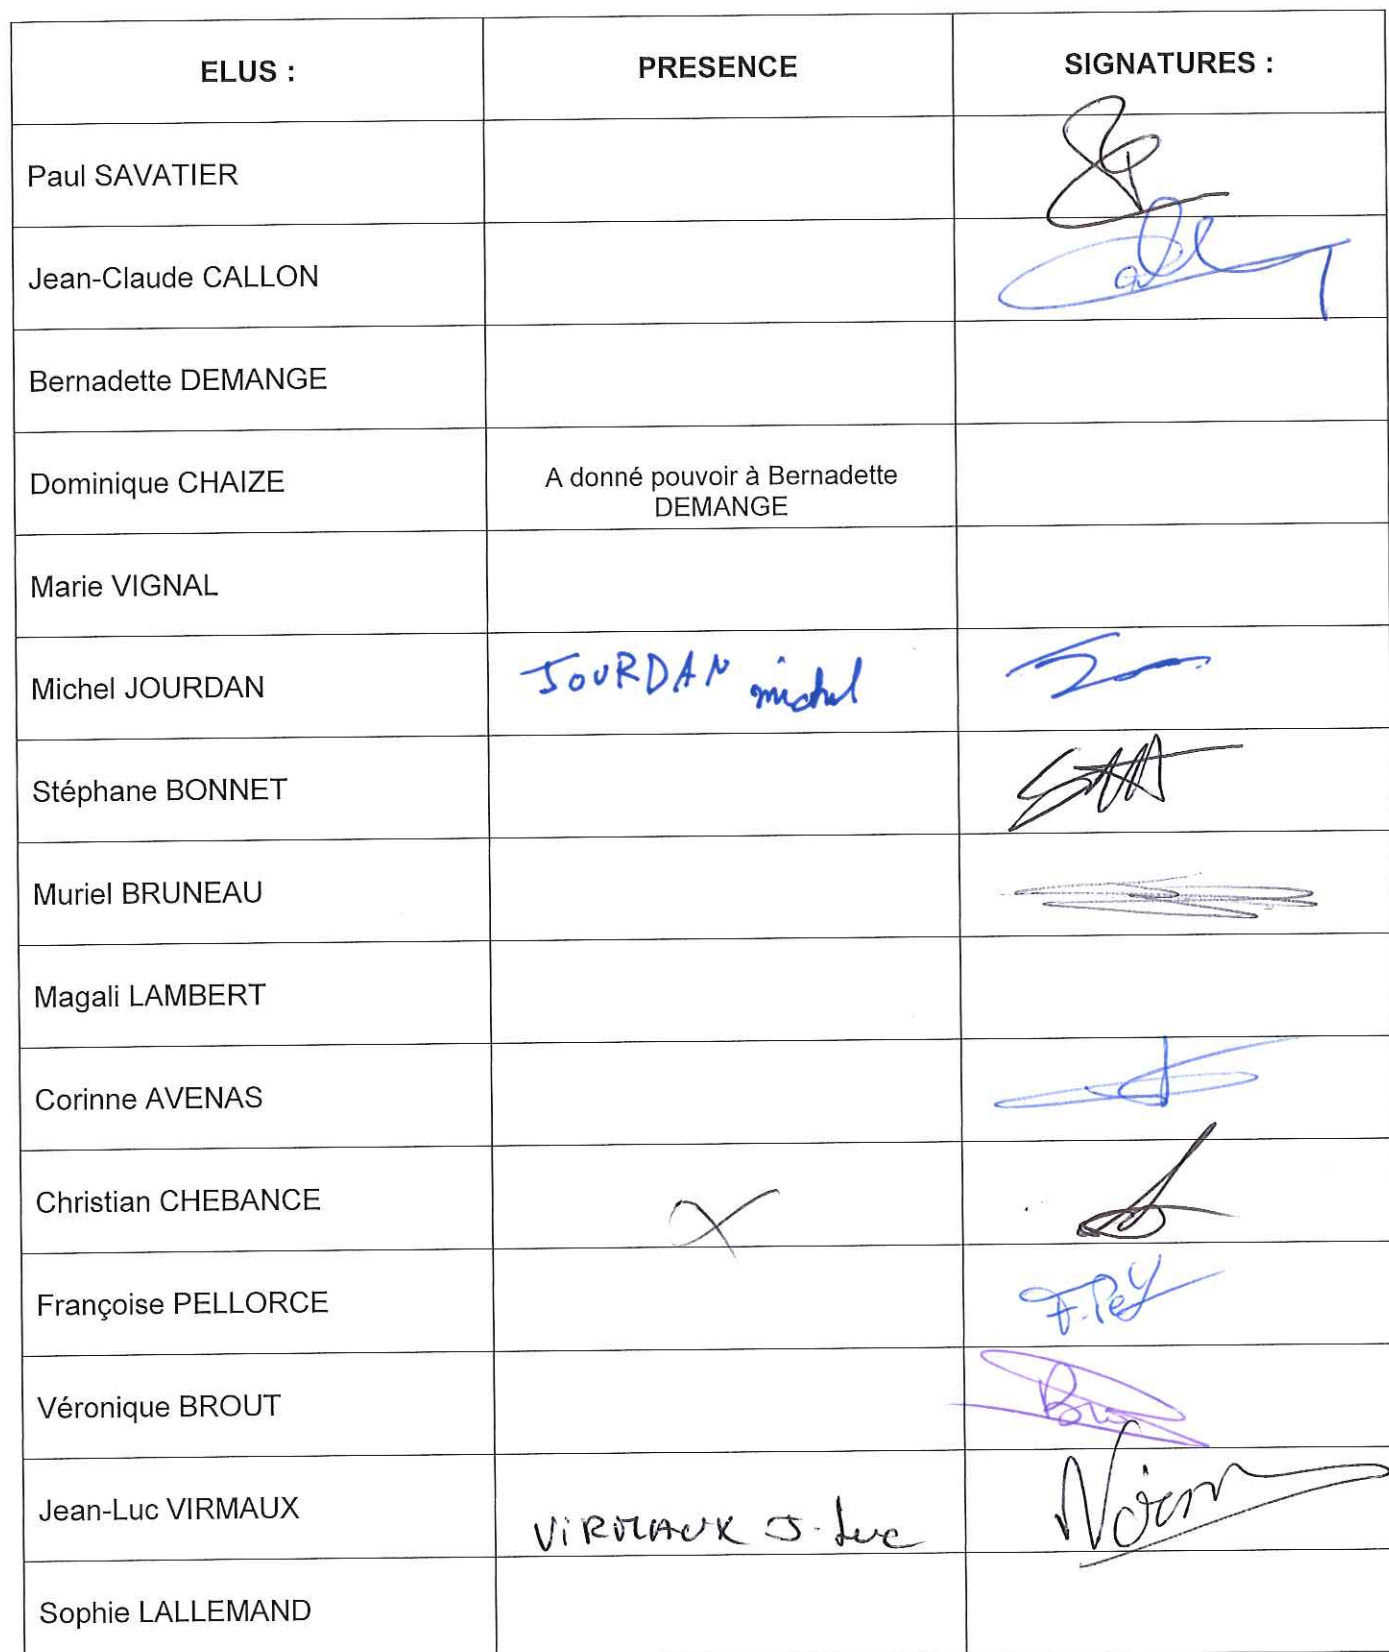 ELUS :
PRESENCE
SIGNATURES :
Paul SAVATIER
Jean-Claude CALLON
Bernadette DEMANGE
Dominique CHAIZE
A donné pouvoir à Bernadette
DEMANGE
Marie VIGNAL
Michel JOURDAN
JOURDAN michel
Stéphane BONNET
Muriel BRUNEAU
Magali LAMBERT
Corinne AVENAS
Christian CHEBANCE
X
Françoise PELLORCE
Véronique BROUT
Jean-Luc VIRMAUX
ViRMAUX J-Luc
Sophie LALLEMAND